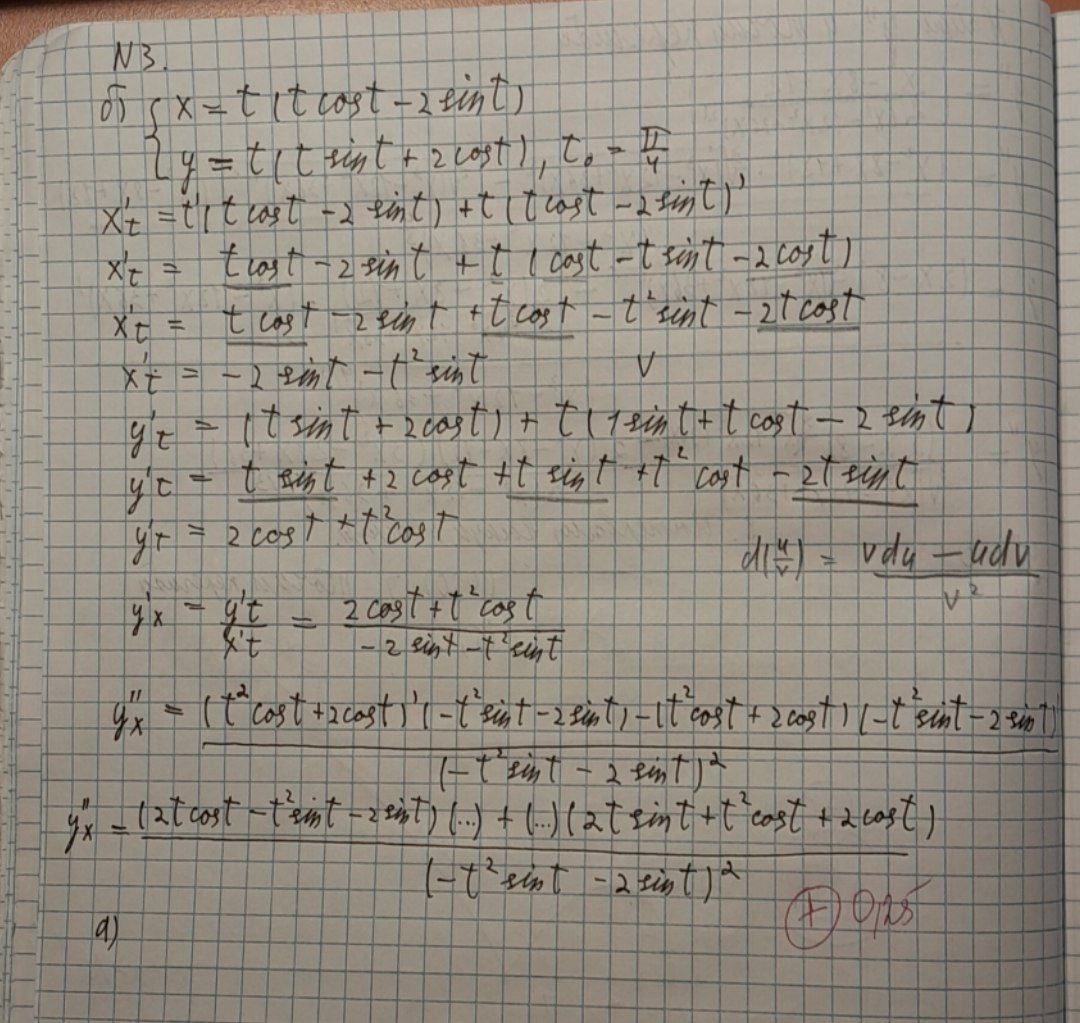 N3.
б) { x = t (t cost − 2 sint)
y = t(t sint + 2 cost), t₀ = π/4
x't = t'(t cost − 2 sint) + t (t cost − 2 sint)'
x't = t cost − 2 sint + t (cost − t sint − 2 cost)
x't = t cost − 2 sint + t cost − t² sint − 2t cost
x't = − 2 sint − t² sint V
y't = (t sint + 2 cost) + t (1 sint + t cost − 2 sint)
y't = t sint + 2 cost + t sint + t² cost − 2t sint
y't = 2 cost + t² cost
d(u/v) = (vdu − udv)/v²
y'x = y't/x't = (2 cost + t² cost)/(− 2 sint − t² sint)
y''x = ((t² cost + 2 cost)' (− t² sint − 2 sint) − (t² cost + 2 cost) (− t² sint − 2 sint)')/(− t² sint − 2 sint)²
y''x = ((2t cost − t² sint − 2 sint) (...) + (...) (2t sint + t² cost + 2 cost))/(− t² sint − 2 sint)²
0,25
а)